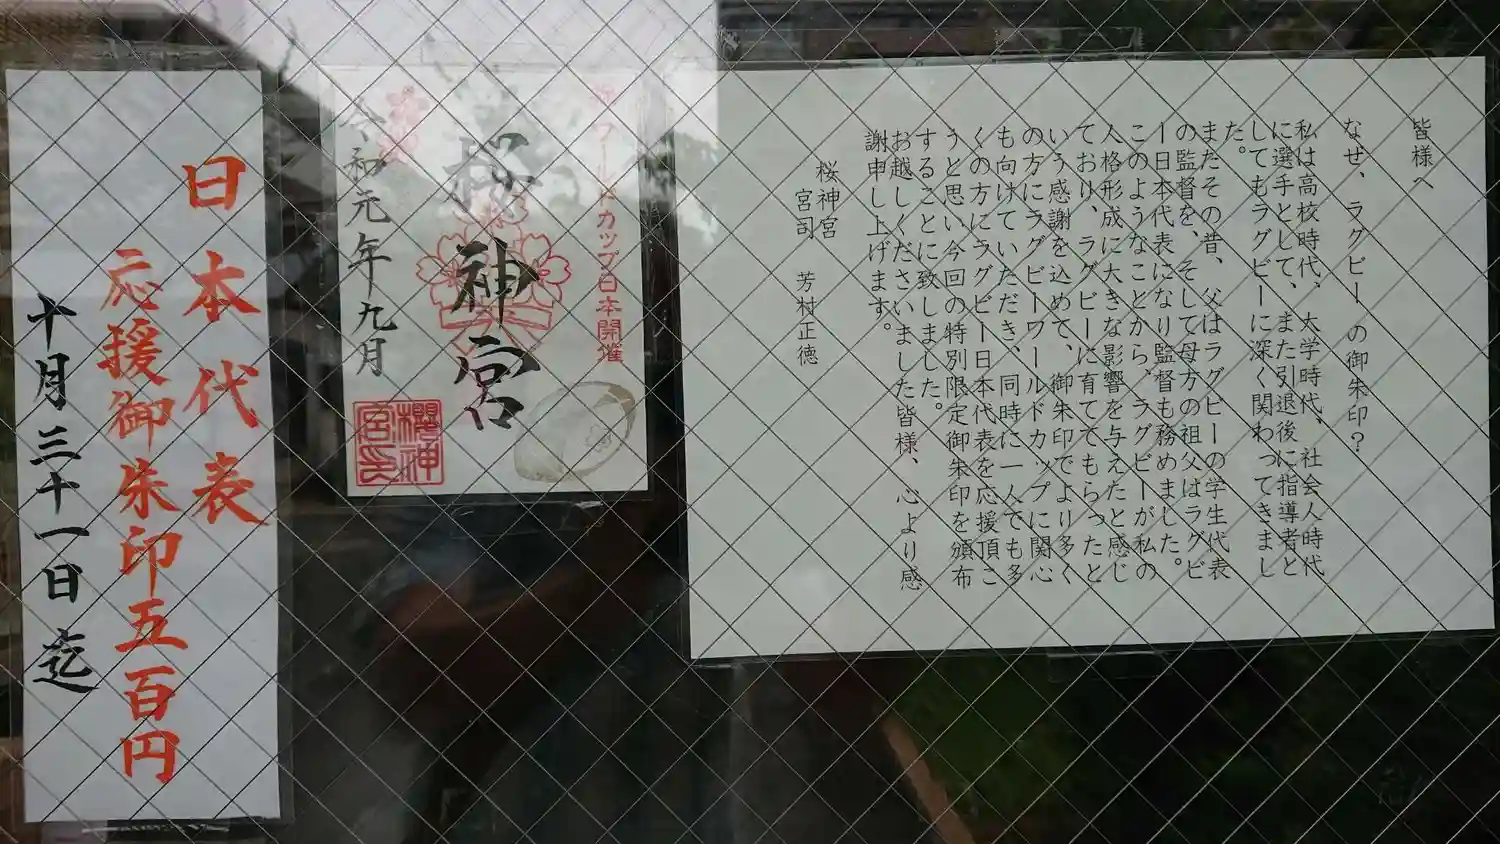 皆様へ
なぜ、ラグビーの御朱印？
私は高校時代、大学時代、社会人時代
に選手として、また引退後に指導者と
してもラグビーに深く関わってきまし
た。
またその昔、父はラグビーの学生代表
の監督を、そして母方の祖父はラグビ
ー日本代表になり監督も務めました。
このようなことから、ラグビーが私の
人格形成に大きな影響を与えたと感じ
ており、ラグビーに育ててもらったと
いう感謝を込めて、御朱印でより多く
の方にラグビーワールドカップに関心
も向けていただき、同時に一人でも多
くの方にラグビー日本代表を応援頂こ
うと思い今回の特別限定御朱印を頒布
することに致しました。
お越しくださいました皆様、心より感
謝申し上げます。
桜神宮
宮司 芳村正徳
ワールドカップ日本開催
桜神宮
令和元年九月
櫻神
宮印
日本代表
応援御朱印五百円
十月三十一日迄